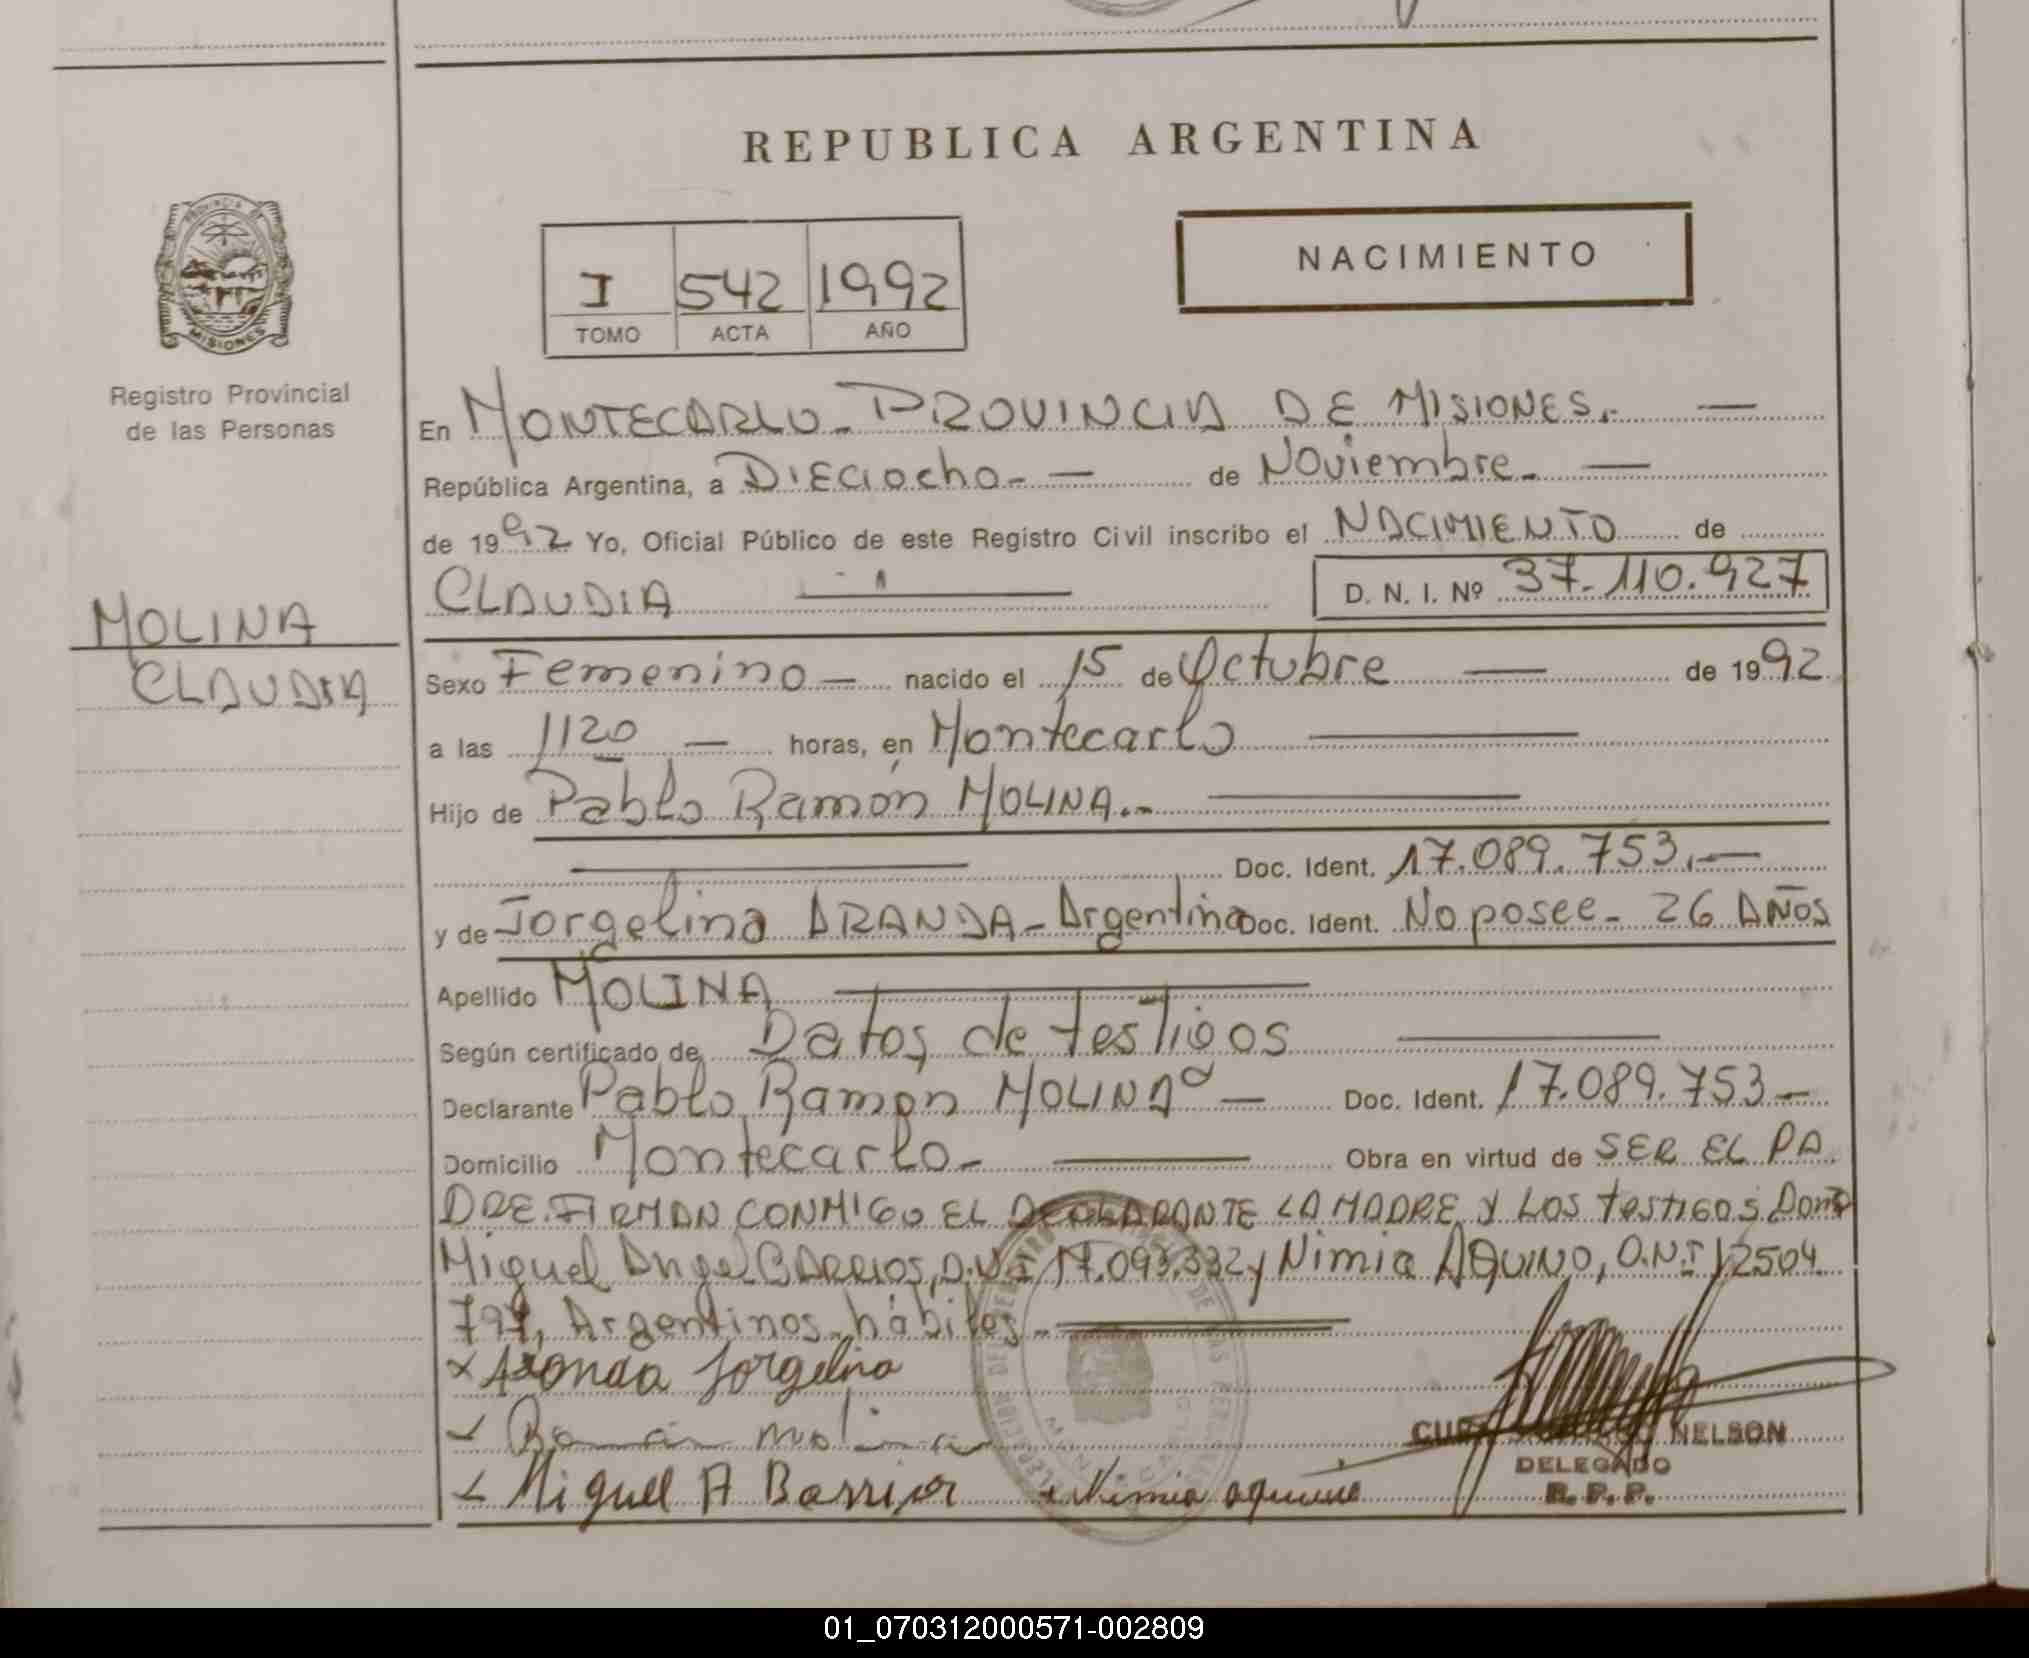 REPUBLICA ARGENTINA
PROVINCIA DE
MISIONES
Registro Provincial
de las Personas
MOLINA
CLAUDIA
I 542 1992
TOMO ACTA AÑO
NACIMIENTO
En MONTECARLO - PROVINCIA DE MISIONES.- —
República Argentina, a DIECIOcho - — de Noviembre - —
de 1992 Yo, Oficial Público de este Registro Civil inscribo el NACIMIENTO de
CLAUDIA — D. N. I. Nº 37.110.927
Sexo Femenino — nacido el 15 de Octubre — de 1992
a las 1120 — horas, en Montecarlo —
Hijo de Pablo Ramón MOLINA.- —
— Doc. Ident. 17.089.753.—
y de Jorgelina ARANDA - Argentina Doc. Ident. No posee - 26 AÑOS
Apellido MOLINA —
Según certificado de Datos de testigos —
Declarante Pablo Ramon MOLINA — Doc. Ident. 17.089.753 —
Domicilio Montecarlo - — Obra en virtud de SER EL PA
DRE. FIRMAN CONMIGO EL DECLARANTE LA MADRE Y LOS testigos Don
Miguel Angel BARRIOS, D.N.I 17.093.332 y Nimia AQUINO, D.N.I 12504
797, Argentinos hábiles -
x Aranda Jorgelina
Ramón molina
Miguel A Barrios x Nimia aquino
NELSON
DELEGADO
R. P. P.
01_070312000571-002809